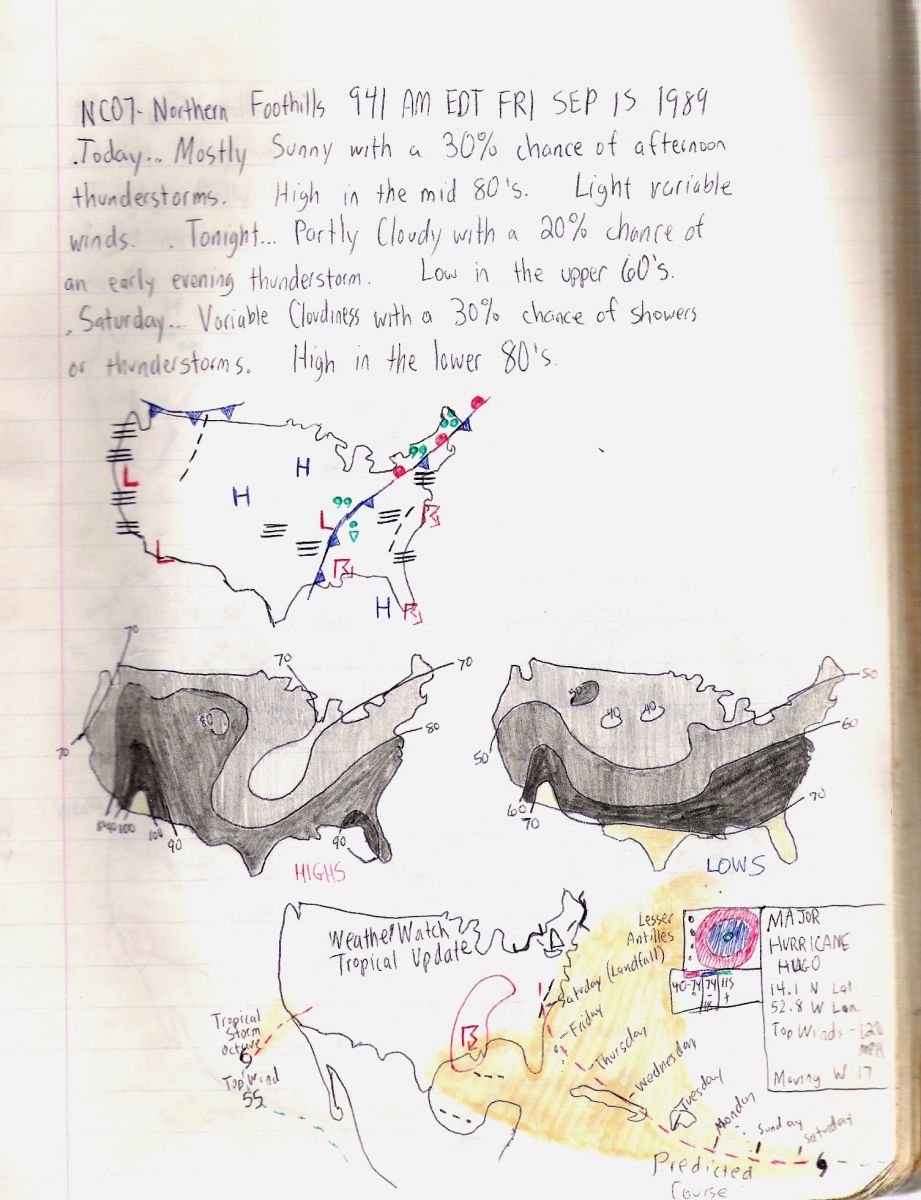 NC07- Northern Foothills 941 AM EDT FRI SEP 15 1989
.Today... Mostly Sunny with a 30% chance of afternoon
thunderstorms. High in the mid 80's. Light variable
winds. .Tonight... Partly Cloudy with a 20% chance of
an early evening thunderstorm. Low in the upper 60's.
.Saturday... Variable Cloudiness with a 30% chance of showers
or thunderstorms. High in the lower 80's.
H
H
L
L
L
H
70
70
70
70
80
80
90
100
90
90
HIGHS
50
40
40
50
60
50
60
70
70
LOWS
WeatherWatch
Tropical Update
Tropical
Storm
Octave
Top Wind
55
Lesser
Antilles
40-74
74
115
+
MAJOR
HURRICANE
HUGO
14.1 N Lat
52.8 W Lon
Top Winds - 120
MPH
Moving W-17
Saturday (Landfall)
Friday
Thursday
Wednesday
Tuesday
Monday
Sunday
Saturday
Predicted
Course